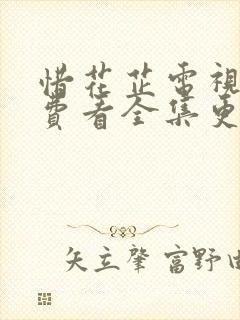 惜花芷電視
費看全集更
矢立肇 富野由